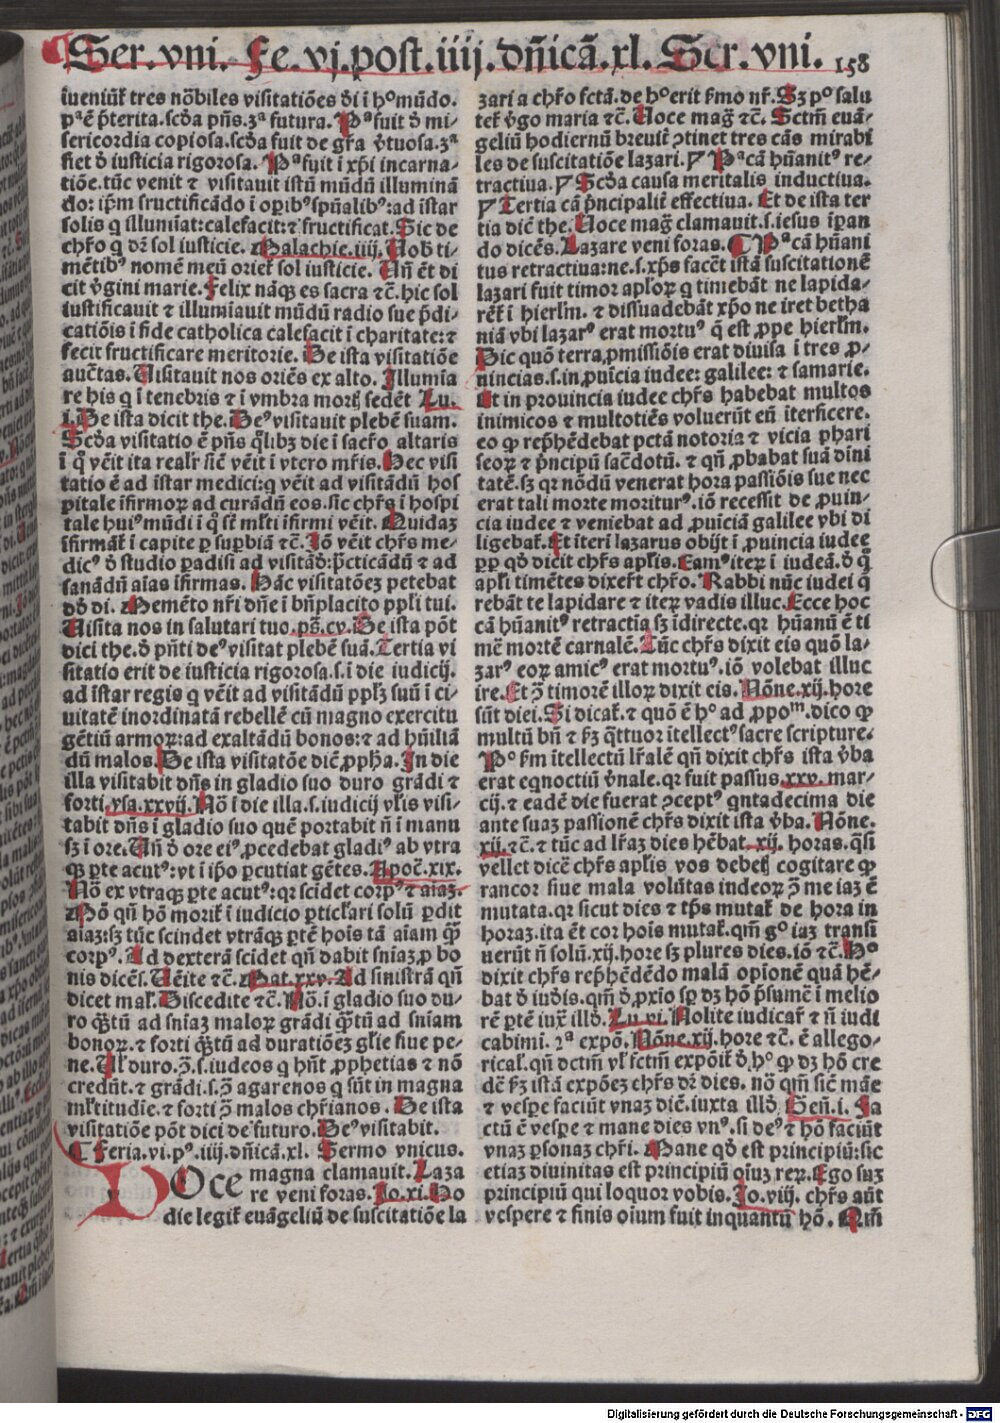 Ser. vni. Fe. vj. post. iiij. dñicã. xl. Ser. vni. 158
īueniūt̄ tres nōbiles visitatiões d̄i ī hᵒ mūdo.
pᵃ ē p̄terita. scd̓a pñs. 3ᵃ futura. Pᵃ fuit d̓ mi⸗
sericordia copiosa. scd̓a fuit de gr̄a v̓tuosa. 3ᵃ
fiet d̓ iusticia rigorosa. Pᵃ fuit ī xp̄i incarna⸗
tiõe. tūc venit ⁊ visitauit istū mūdū illuminā
do: ip̄m fructificādo ī oꝑibꝰ sp̄ualibꝰ: ad īstar
solis q illumīat: calefacit: ⁊ fructificat. Sic de
chr̄o q dr̄ sol iusticie. Malachie. iiij. Uob ti⸗
mētibꝰ nomē meū oriet̄ sol iusticie. Uñ ēt di
cit v̓gini marie. Felix nāqꝫ es sacra ⁊c̄. hic sol
iustificauit ⁊ illumīauit mūdū radio sue p̄di⸗
catiõis ī fide catholica calefacit ī charitate: ⁊
fecit fructificare meritorie. De ista visitatiõe
auc̄tas. Uisitauit nos oriēs ex alto. Illumīa
re his q ī tenebris ⁊ ī vmbra mort; sedēt Lu.
i. De ista dicit the. Deꝰ visitauit plebē suam.
Scd̓a visitatio ē pñs q̄libꝫ die ī sacr̄o altaris
ī q̊ vēit ita realr̄ sic̄ vēit ī vtero mr̄is. Hec visi
tatio ē ad īstar medici: q vēit ad visitādū hos
pitale īfirmoꝝ ad curādū eos. sic chr̄s ī hospi
tale huiꝰ mūdi ī q̊ st̄ ml̄ti īfirmi vēit. Quidaꝫ
īfirmāt̄ ī capite ꝑ suꝑbiā ⁊c̄. Iō vēit chr̄s me⸗
dicꝰ d̓ studio ꝑadisi ad visitād̓: p̄cticādū ⁊ ad
sanādū aīas īfirmas. Hāc visitatiõeꝫ petebat
d̓d̓ di. Memēto nr̄i dñe ī bñplacito ppl̄i tui.
Uisita nos in salutari tuo. ps̄. cv. De ista pōt
dici the. d̓ pñti deꝰ visitat plebē suā. Tertia vi
sitatio erit de iusticia rigorosa. s. ī die iudicij.
ad īstar regis q vēit ad visitādū ppl̄ꝫ suū ī ci⸗
uitatē inordinatā rebellē cū magno exercitu
gētiū armoꝝ: ad exaltādū bonos: ⁊ ad hūiliā
dū malos. De ista visitatōe dic̄ ꝓpha. In die
illa visitabit dñs in gladio suo duro grādi ⁊
forti. ysa. xxvij. Nō ī die illa. s. iudicij vl̄is visi⸗
tabit dñs ī gladio suo quē portabit ñ ī manu
sꝫ ī ore. Uñ d̓ ore eiꝰ ꝓcedebat gladiꝰ ab vtra
qꝫ ꝑte acutꝰ: vt ī ip̄o ꝑcutiat gētes. Apoc̄. xix.
Nō ex vtraqꝫ ꝑte acutꝰ: qꝛ scidet corpꝰ ⁊ aīaꝫ.
Mō qñ hō morit̄ ī iudicio ꝑticl̄ari solū ꝑdit
aīaꝫ: sꝫ tūc scindet vtrāqꝫ ꝑtē hoīs tā aīam q̄ꝫ
corpꝰ. Ad dexterā scidet qñ dabit sniaꝫ ꝓ bo
nis dicēs. Uēite ⁊c̄. Mat. xxv. Ad sinistrā qñ
dicet mal̄. Discedite ⁊c̄. Nō. ī gladio suo du⸗
ro q̄ꝫtū ad sniaꝫ maloꝝ grādi q̄ꝫtū ad sniam
bonoꝝ. ⁊ forti q̄ꝫtū ad duratiõeꝫ gl̄ie siue pe⸗
ne. Ul̄ duro. ꝯ̄. s. iudeos q hñt ꝓphetias ⁊ nō
credūt. ⁊ grādi. s. ꝯ̄ agarenos q sūt in magna
ml̄titudīe. ⁊ forti ꝯ̄ malos chr̄ianos. De ista
visitatiõe pōt dici de futuro. Deꝰ visitabit.
¶ Feria. vi. pꝰ. iiij. dñicā. xl. Sermo vnicus.
VOce magna clamauit. Laza
re veni foras. Jo. xi. Ho
die legit̄ euāgeliū de suscitatiõe la
zari a chr̄o fctā. de hᵒ erit s̓mo nr̄. Sꝫ pᵒ salu
tet̄ v̓go maria ⁊c̄. Uoce mag̃ ⁊c̄. Sctm̄ euā⸗
geliū hodiernū breuit̓ ꝯtinet tres cās mirabi
les de suscitatiõe lazari. Pᵃ cā hūanitꝰ re⸗
tractiua. Scd̓a causa meritalis inductiua.
Tertia cā p̄ncipalit̓ effectiua. Et de ista ter
tia dic̄ the. Uoce mag̃ clamauit. s. iesus īꝑan
do dicēs. Lazare veni foras. ¶ Pᵃ cā hūani
tus retractiua: ne. s. xp̄s facēt istā suscitationē
lazari fuit timor apl̄oꝝ q timebāt ne lapida⸗
rēt̄ ī hierl̄m. ⁊ dissuadebāt xp̄o ne iret betha
niā vbi lazarꝰ erat mortuꝰ q̄ est ꝓpe hierl̄m.
Sic quō terra ꝓmissiõis erat diuisa ī tres ꝓ⸗
uincias. s. in ꝓuīcia iudee: galilee: ⁊ samarie.
Et in prouincia iudee chr̄s habebat multos
inimicos ⁊ multotiēs voluerūt eū īterficere.
eo ꝙ rep̄hēdebat pctā notoria ⁊ vicia phari
seoꝝ ⁊ p̄ncipū sac̄dotū. ⁊ qñ ꝓbabat suā diui
tatē. sꝫ qꝛ nōdū venerat hora passiõis sue nec
erat tali morte moriturꝰ. iō recessit de ꝓuin⸗
cia iudee ⁊ veniebat ad ꝓuīciā galilee vbi di
ligebat̄. Et īterī lazarus obijt ī ꝓuincia iudee
ꝑp qd̓ dicit chr̄s apl̄is. Eamꝰ iteꝝ ī iudeā. d̓ q̊
apl̄i timētes dixer̄t chr̄o. Rabbi nūc iudei q̄
rebāt te lapidare ⁊ iteꝝ vadis illuc. Ecce hoc
cā hūanitꝰ retractīa sꝫ īdirecte. qꝛ hūanū ē ti
mē mortē carnalē. Tūc chr̄s dixit eis quō la⸗
zarꝰ eoꝝ amicꝰ erat mortuꝰ. iō volebat illuc
ire. Et ꝯ̄ timorē illoꝝ dixit eis. Nōne. xij. hore
sūt diei. Si dicat̄. ⁊ quō ē hᵒ ad ꝓpoᵐ. dico ꝙ
multū bñ ⁊ s̓ꝫ q̄ttuoꝛ ītellectꝰ sacre scripture.
Pᵒ s̓m ītellectū lr̄alē qñ dixit chr̄s ista v̓ba
erat eqnoctiū v̓nale. qꝛ fuit passus. xxv. mar⸗
cij. ⁊ eadē die fuerat ꝯceptꝰ qntadecima die
ante suaꝫ passionē chr̄s dixit ista v̓ba. Nōne.
xij. ⁊c̄. ⁊ tūc ad lr̄aꝫ dies hēbat. xij. horas. q̄si
vellet dicē chr̄s apl̄is vos debet; cogitare ꝙ
rancor siue mala volūtas iudeoꝝ ꝯ̄ me iaꝫ ē
mutata. qꝛ sicut dies ⁊ tp̄s mutat̄ de hora in
horaꝫ. ita ēt cor hoīs mutat̄. qm̄ gᵒ iaꝫ transi
uerūt ñ solū. xij. hore sꝫ plures dies. iō ⁊c̄. Hᵒ
dixit chr̄s rep̄hēdēdo malā opionē quā hē⸗
bāt d̓ iud̓is. qm̄ d̓ ꝓxīo sꝑ dꝫ hō p̄sumē ī melio
rē ꝑtē iux̄ illd̓. Lu. vi. Nolite iudicar̄ ⁊ ñ iudi
cabimī. 2ᵃ expō. Nōne. xij. hore ⁊c̄. ē allego⸗
rical̄. qñ dctm̄ vl̄ fctm̄ expōit̄ d̓ hᵒ ꝙ dꝫ hō cre
dē s̓ꝫ istā expōeꝫ chr̄s dr̄ dies. nō qm̄ sic̄ māe
⁊ vesꝑe faciūt vnaꝫ diē. iuxta illd̓. Geñ. i. Fa
ctū ē vesꝑe ⁊ mane dies vnꝰ. si deꝰ ⁊ hō faciūt
vnaꝫ ꝑsonaꝫ chr̄i. Mane qd̓ est principiū: sic
etiaꝫ diuinitas est principiū oīuꝫ reꝝ. Ego suꝫ
principiū qui loquor vobis. Jo. viij. chr̄s aūt
vespere ⁊ finis oīum fuit inquantū hō. Qm̄
Digitalisierung gefördert durch die Deutsche Forschungsgemeinschaft - DFG